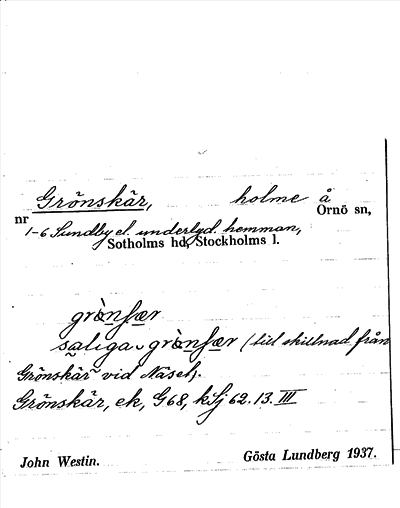 Grönskär, holme å
nr Ornö sn,
1-6 Sundby el. underlyd. hemman,
Sotholms hd, Stockholms l.
saliga (till skillnad från
Grönskär vid Näset).
Grönskär, ek, G68, kSj 62.13.III
John Westin. Gösta Lundberg 1937.